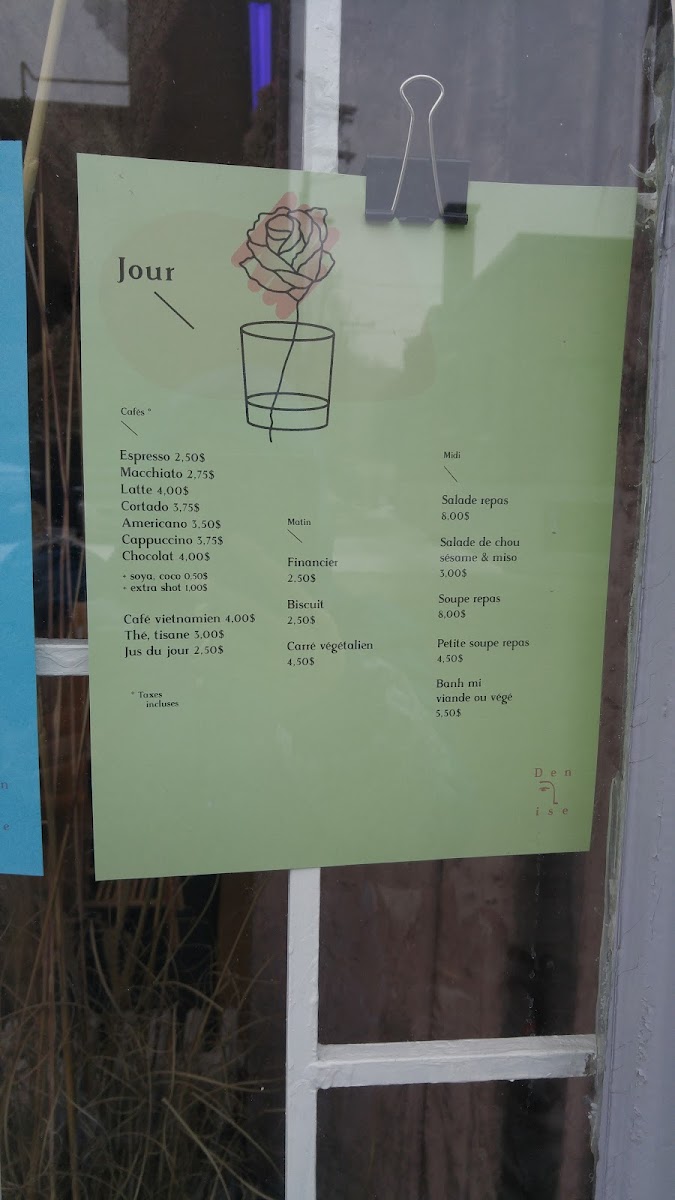 Jour
Cafés *
Espresso 2,50$
Macchiato 2,75$
Latte 4,00$
Cortado 3,75$
Americano 3,50$
Cappuccino 3,75$
Chocolat 4,00$
+ soya, coco 0,50$
+ extra shot 1,00$
Café vietnamien 4,00$
Thé, tisane 3,00$
Jus du jour 2,50$
* Taxes
incluses
Matin
Financier
2,50$
Biscuit
2,50$
Carré végétalien
4,50$
Midi
Salade repas
8,00$
Salade de chou
sésame & miso
3,00$
Soupe repas
8,00$
Petite soupe repas
4,50$
Banh mi
viande ou végé
5,50$
Den
ise
n
e